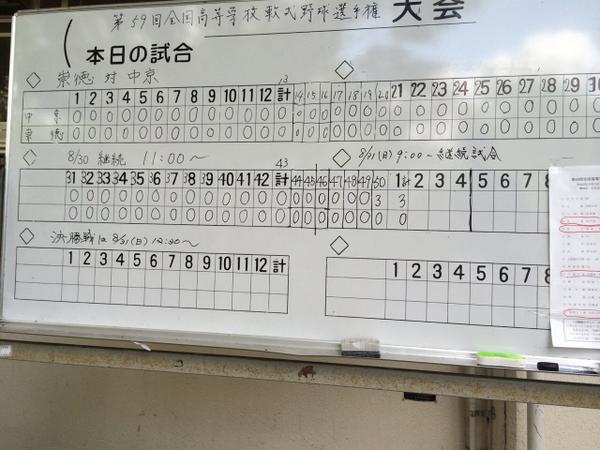 第59回全国高等学校軟式野球選手権 大会
本日の試合
崇徳 対 中京
1 2 3 4 5 6 7 8 9 10 11 12 13 14 15 16 17 18 19 20 21 22 23 24 25 26 27 28 29 30
計
中京 0 0 0 0 0 0 0 0 0 0 0 0 0 0 0 0 0 0 0 0 0 0 0 0 0 0 0 0 0
崇徳 0 0 0 0 0 0 0 0 0 0 0 0 0 0 0 0 0 0 0 0 0 0 0 0 0 0 0 0 0
8/30 継続 11:00～
8/31(日) 9:00～ 継続試合
31 32 33 34 35 36 37 38 39 40 41 42 43 44 45 46 47 48 49 50 計 2 3 4 5 6 7 8
計
0 0 0 0 0 0 0 0 0 0 0 0 0 0 0 0 0 0 0 3 3
0 0 0 0 0 0 0 0 0 0 0 0 0 0 0 0 0 0 0 0 0
決勝戦は 8/31(日) 12:30～
1 2 3 4 5 6 7 8 9 10 11 12 計
1 2 3 4 5 6 7 8